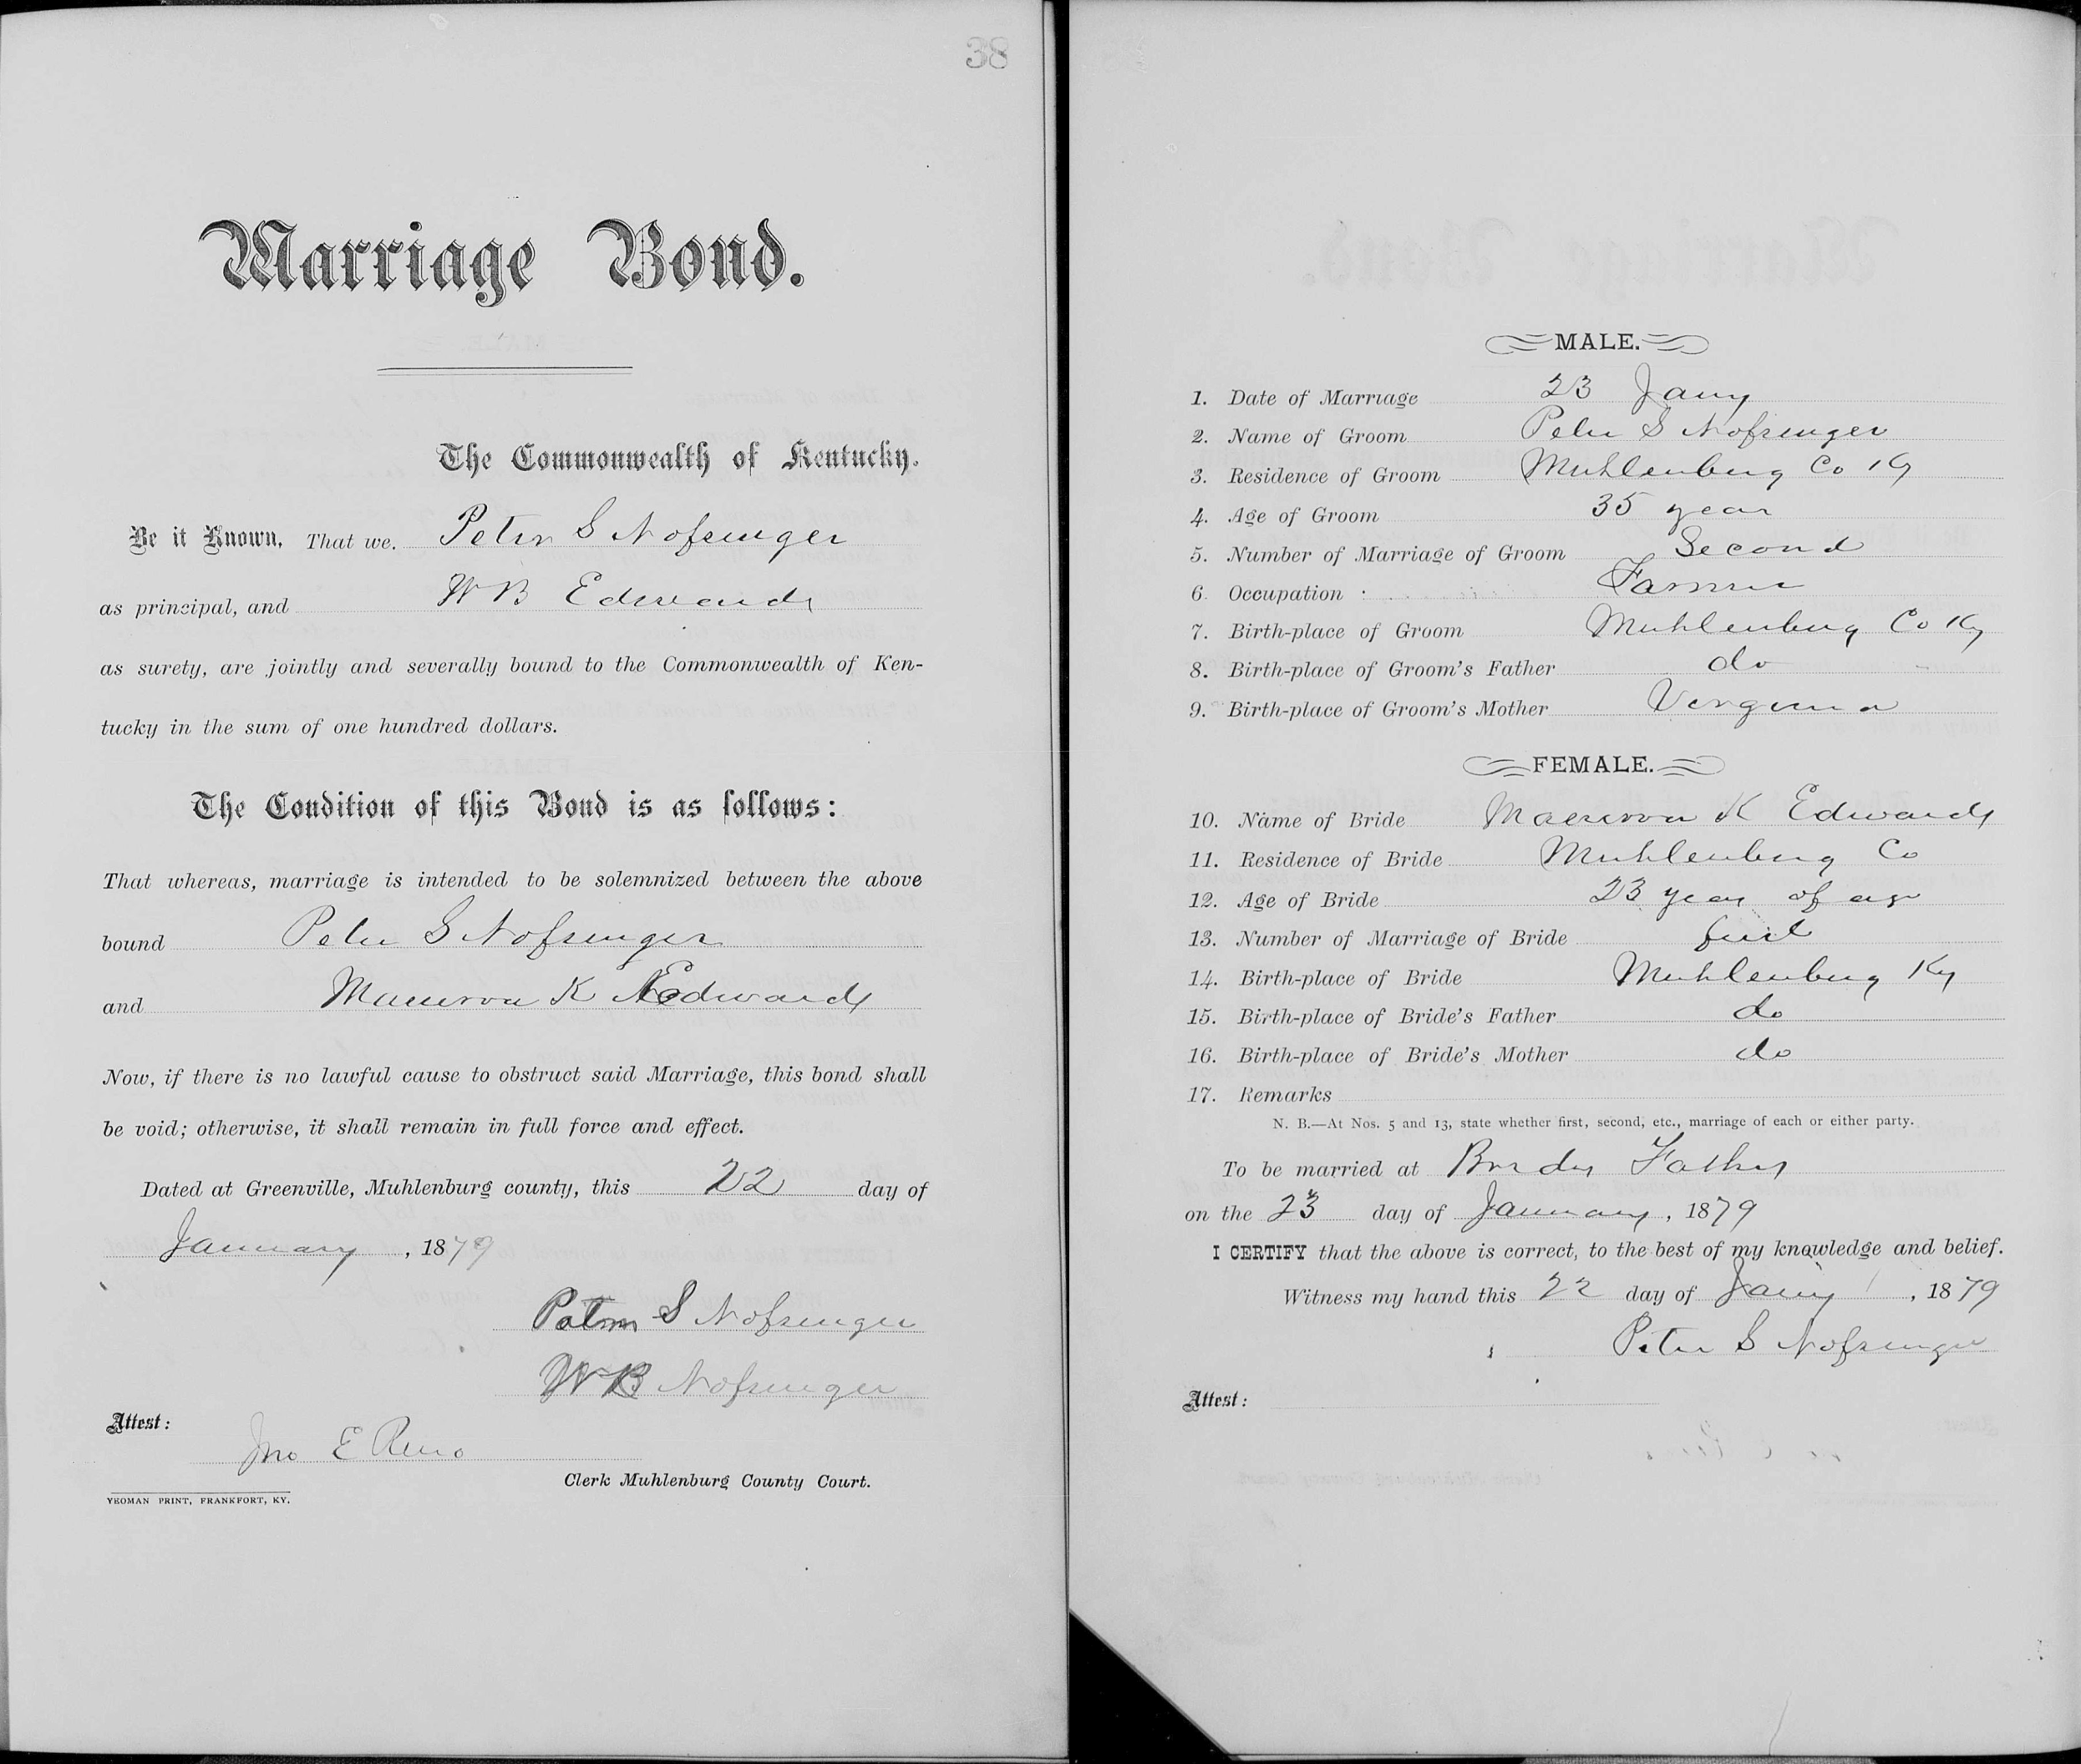 38
Marriage Bond.
The Commonwealth of Kentucky.
Be it Known, That we. Peter S Nofsinger
as principal, and W B Edwards
as surety, are jointly and severally bound to the Commonwealth of Ken-
tucky in the sum of one hundred dollars.
The Condition of this Bond is as follows:
That whereas, marriage is intended to be solemnized between the above
bound Peter S Nofsinger
and K Edwards
Now, if there is no lawful cause to obstruct said Marriage, this bond shall
be void; otherwise, it shall remain in full force and effect.
Dated at Greenville, Muhlenburg county, this 22 day of
January, 1879
Peter S Nofsinger
W B Nofsinger
Attest:
Jno E Reno
Clerk Muhlenburg County Court.
YEOMAN PRINT, FRANKFORT, KY.
MALE.
1. Date of Marriage 23 Jany
2. Name of Groom Peter S Nofsinger
3. Residence of Groom Muhlenburg Co Ky
4. Age of Groom 35 year
5. Number of Marriage of Groom Second
6. Occupation Farmer
7. Birth-place of Groom Muhlenburg Co Ky
8. Birth-place of Groom's Father do
9. Birth-place of Groom's Mother Virginia
FEMALE.
10. Name of Bride K Edwards
11. Residence of Bride Muhlenburg Co
12. Age of Bride 23 year of age
13. Number of Marriage of Bride first
14. Birth-place of Bride Muhlenburg Ky
15. Birth-place of Bride's Father do
16. Birth-place of Bride's Mother do
17. Remarks
N. B.—At Nos. 5 and 13, state whether first, second, etc., marriage of each or either party.
To be married at Brides Fathers
on the 23 day of January, 1879
I CERTIFY that the above is correct, to the best of my knowledge and belief.
Witness my hand this 22 day of Jany, 1879
Peter S Nofsinger
Attest: